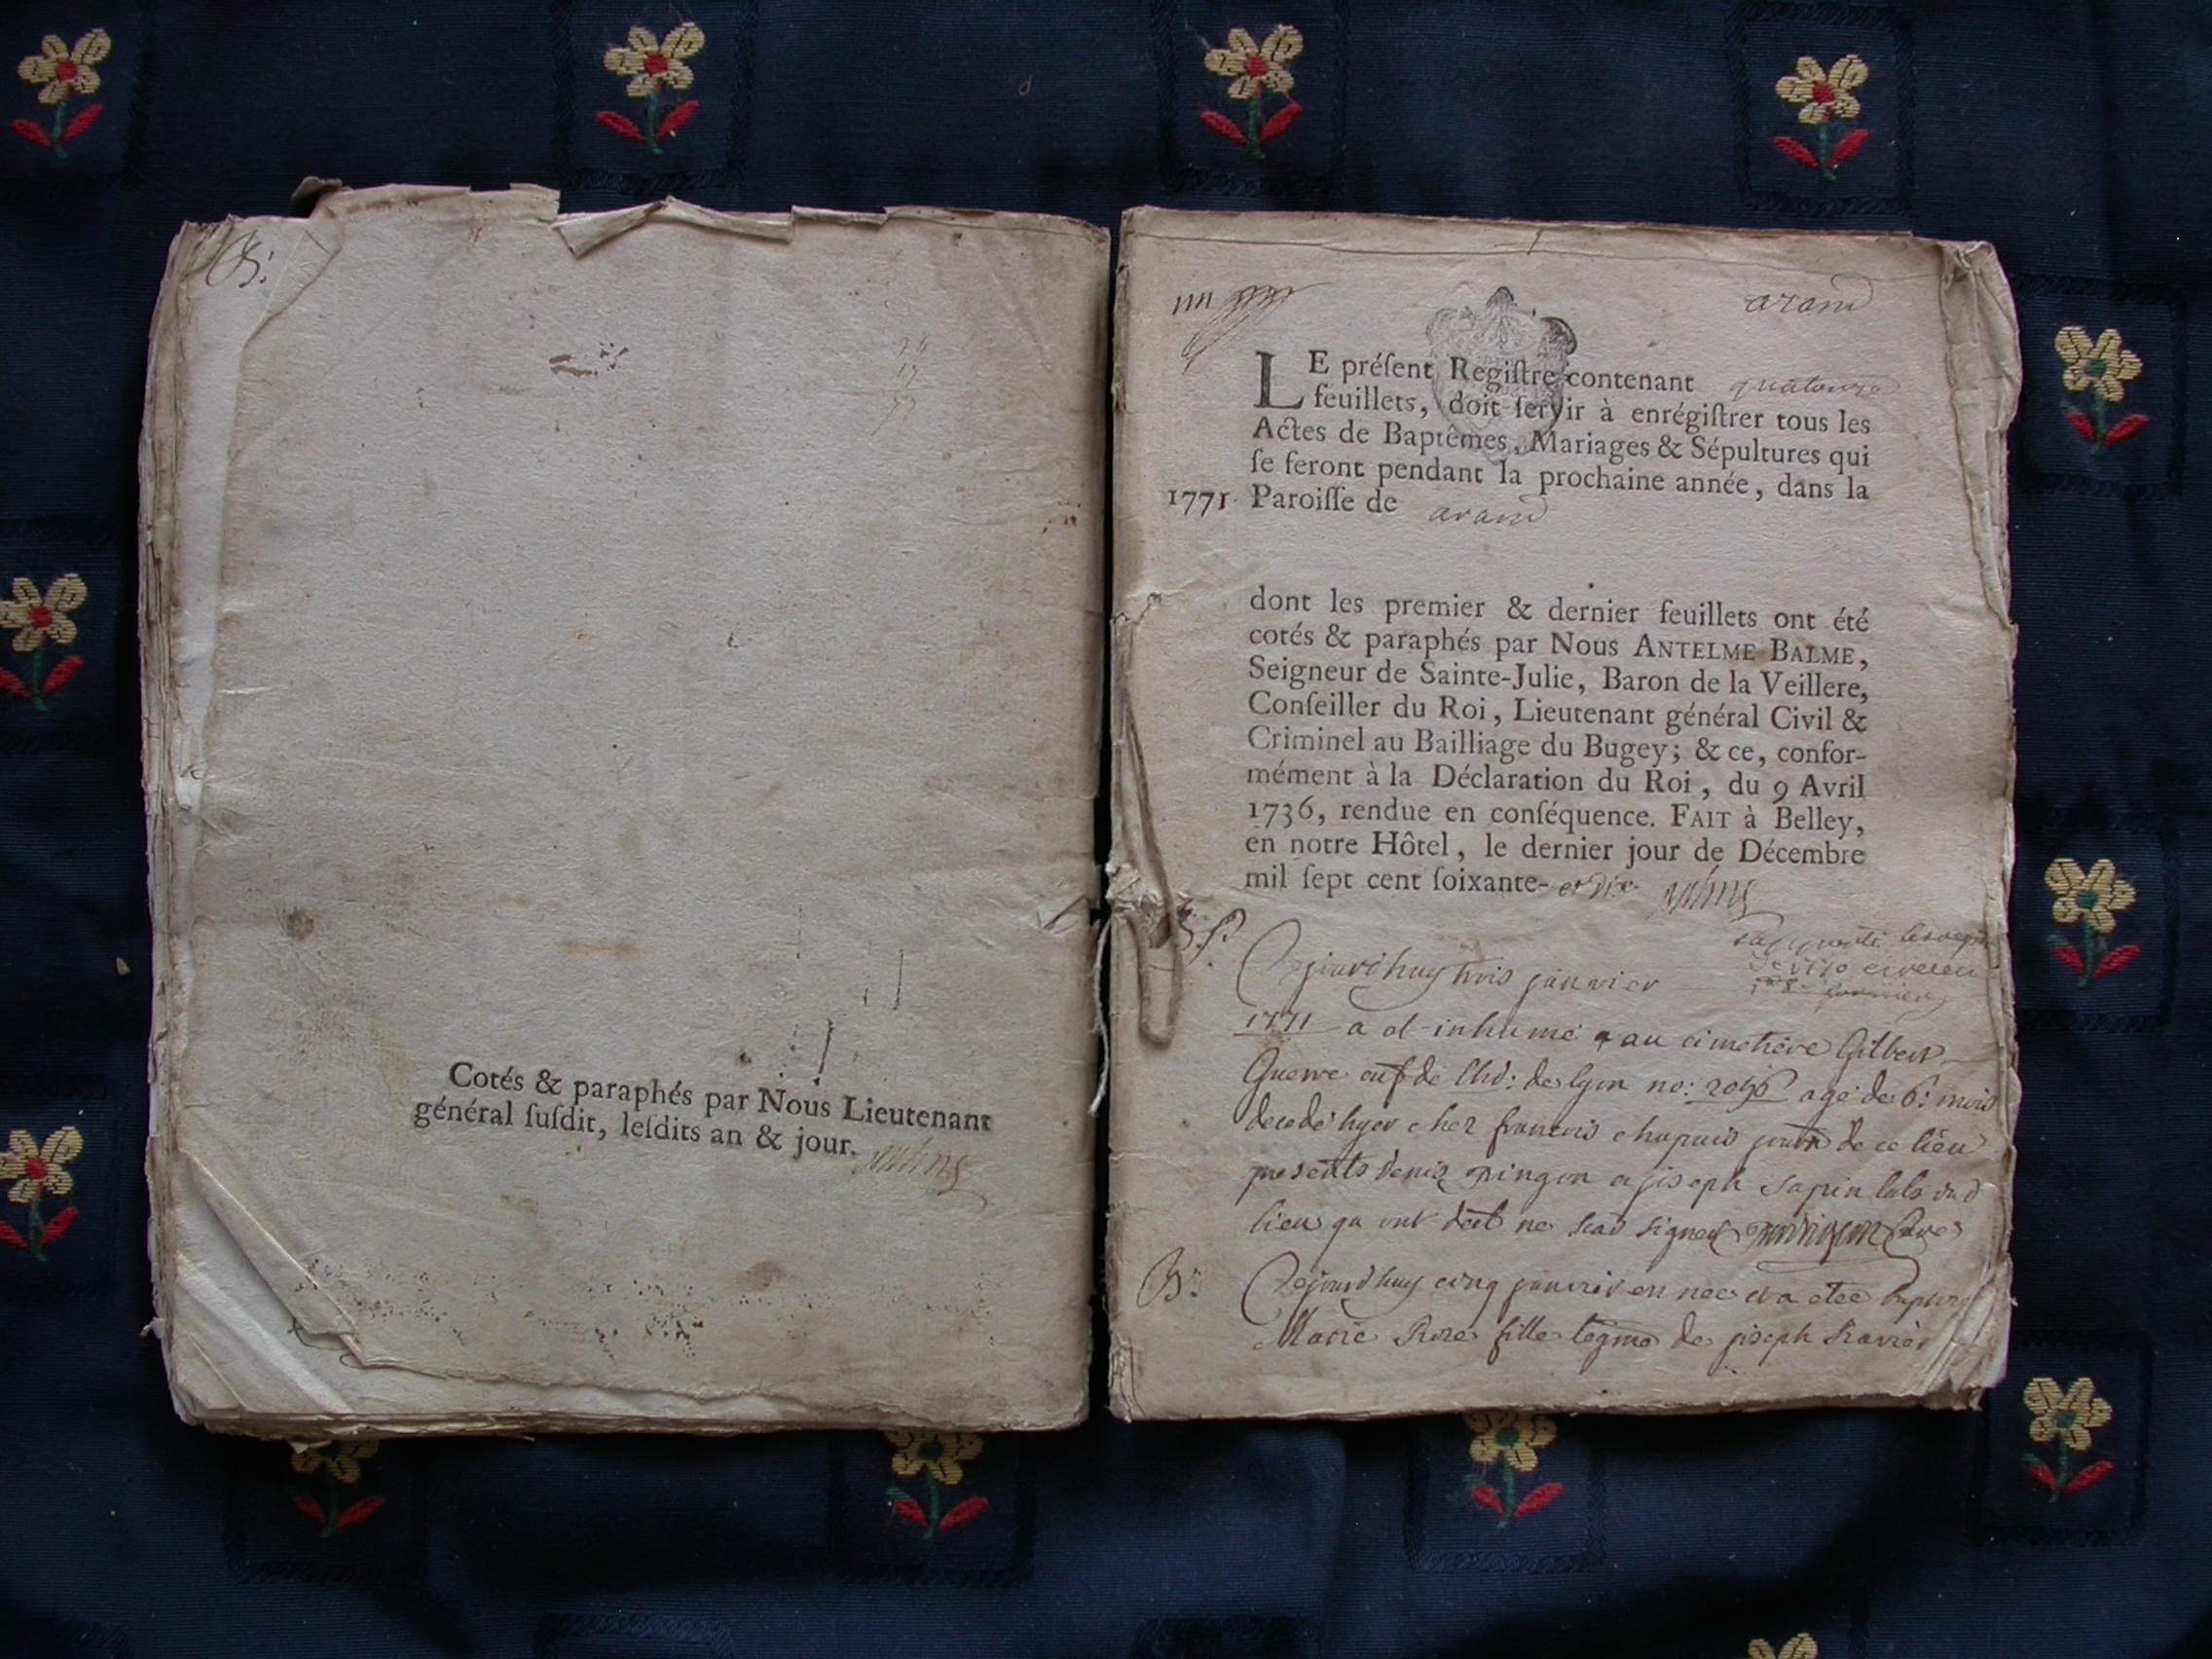 B:
Cotés & paraphés par Nous Lieutenant
général ſuſdit, leſdits an & jour.
arand
LE préſent Regiſtre contenant quatorze
feuillets, doit ſervir à enrégiſtrer tous les
Actes de Baptêmes, Mariages & Sépultures qui
ſe feront pendant la prochaine année, dans la
1771. Paroiſſe de arand
dont les premier & dernier feuillets ont été
cotés & paraphés par Nous ANTELME BALME,
Seigneur de Sainte-Julie, Baron de la Veillere,
Conſeiller du Roi, Lieutenant général Civil &
Criminel au Bailliage du Bugey; & ce, confor-
mément à la Déclaration du Roi, du 9 Avril
1736, rendue en conſéquence. FAIT à Belley,
en notre Hôtel, le dernier jour de Décembre
mil ſept cent ſoixante- et dix
Cejourdhuy trois janvier
1771 a et inhumé au cimetière Gilbert
Guerre de lyon no: agé de 6: mois
decedé hyer chez francois chapuis de ce lieu
presents denis pingon joseph Sapin
lieu qu ont ne signer
B: Cejourdhuy cinq janvier en nee et a etee
Marie Rose fille legme de joseph